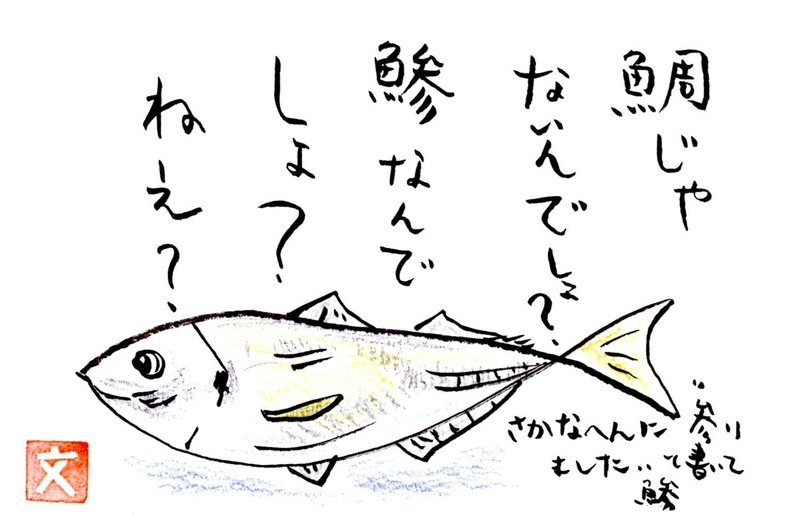 鯛じゃ
ないんでしょ?
鯵なんで
しょ?
ねえ?
さかなへんに“参り
ました”って書いて
鯵
文